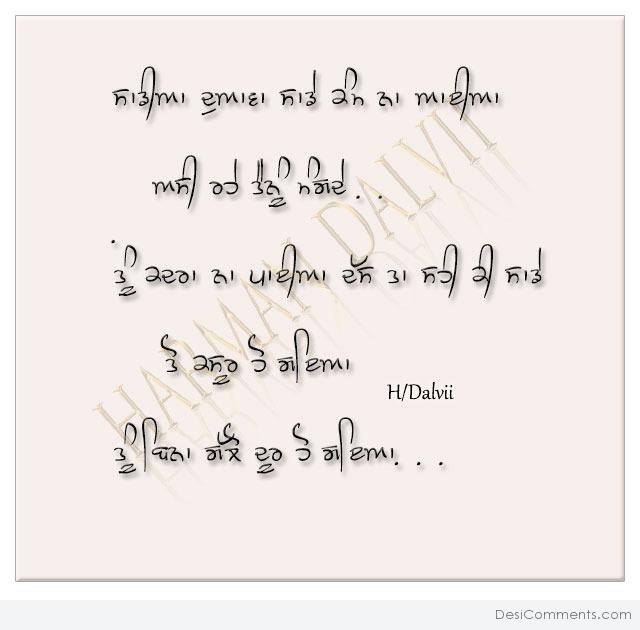 ਸਾਡੀਆ ਦੁਆਵਾ ਸਾਡੇ ਕੰਮ ਨਾ ਆਈਆ
ਅਸੀ ਰਹੇ ਤੈਨੂੰ ਮੰਗਦੇ . .
ਤੂੰ ਕਦਰਾ ਨਾ ਪਾਈਆ ਦੱਸ ਤਾ ਸਹੀ ਕੀ ਸਾਡੇ
ਤੋ ਕਸੂਰ ਹੋ ਗਇਆ
H/Dalvii
ਤੂੰ ਬਿਨਾ ਗੱਲੋ ਦੂਰ ਹੋ ਗਇਆ. . .
HARMAN DALVII
DesiComments.com